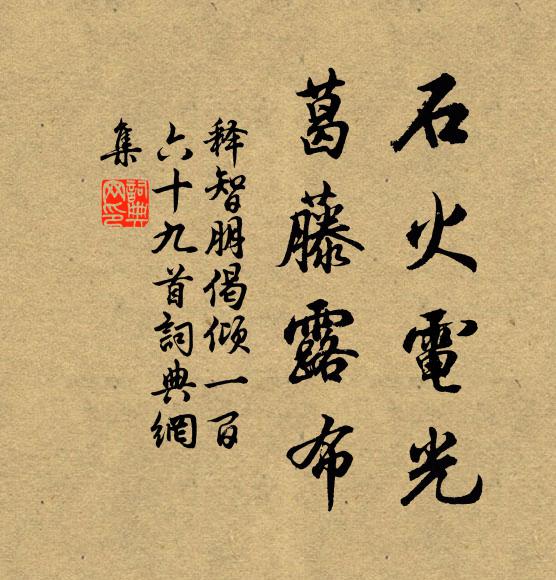 石火電光
葛藤露布
释智朋偈倾一百
六十九首詞典網
集
詞典
网印